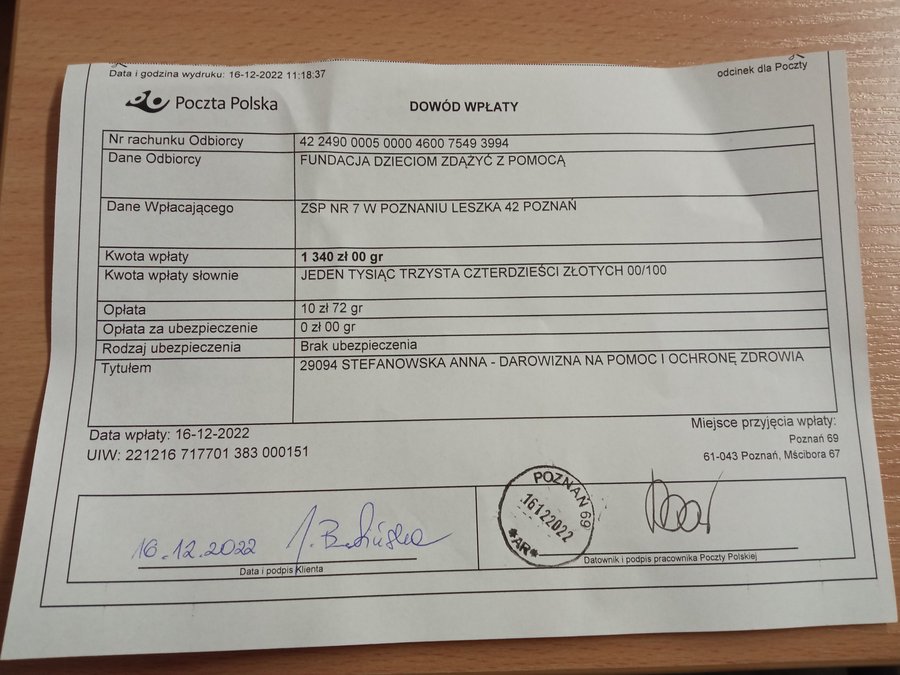 Data i godzina wydruku: 16-12-2022 11:18:37
odcinek dla Poczty
Poczta Polska
DOWÓD WPŁATY
Nr rachunku Odbiorcy 42 2490 0005 0000 4600 7549 3994
Dane Odbiorcy FUNDACJA DZIECIOM ZDĄŻYĆ Z POMOCĄ
Dane Wpłacającego ZSP NR 7 W POZNANIU LESZKA 42 POZNAŃ
Kwota wpłaty 1 340 zł 00 gr
Kwota wpłaty słownie JEDEN TYSIĄC TRZYSTA CZTERDZIEŚCI ZŁOTYCH 00/100
Opłata 10 zł 72 gr
Opłata za ubezpieczenie 0 zł 00 gr
Rodzaj ubezpieczenia Brak ubezpieczenia
Tytułem 29094 STEFANOWSKA ANNA - DAROWIZNA NA POMOC I OCHRONĘ ZDROWIA
Data wpłaty: 16-12-2022
UIW: 221216 717701 383 000151
Miejsce przyjęcia wpłaty:
Poznań 69
61-043 Poznań, Mścibora 67
16.12.2022
Data i podpis Klienta
POZNAŃ 69
16122022
*AR*
Datownik i podpis pracownika Poczty Polskiej